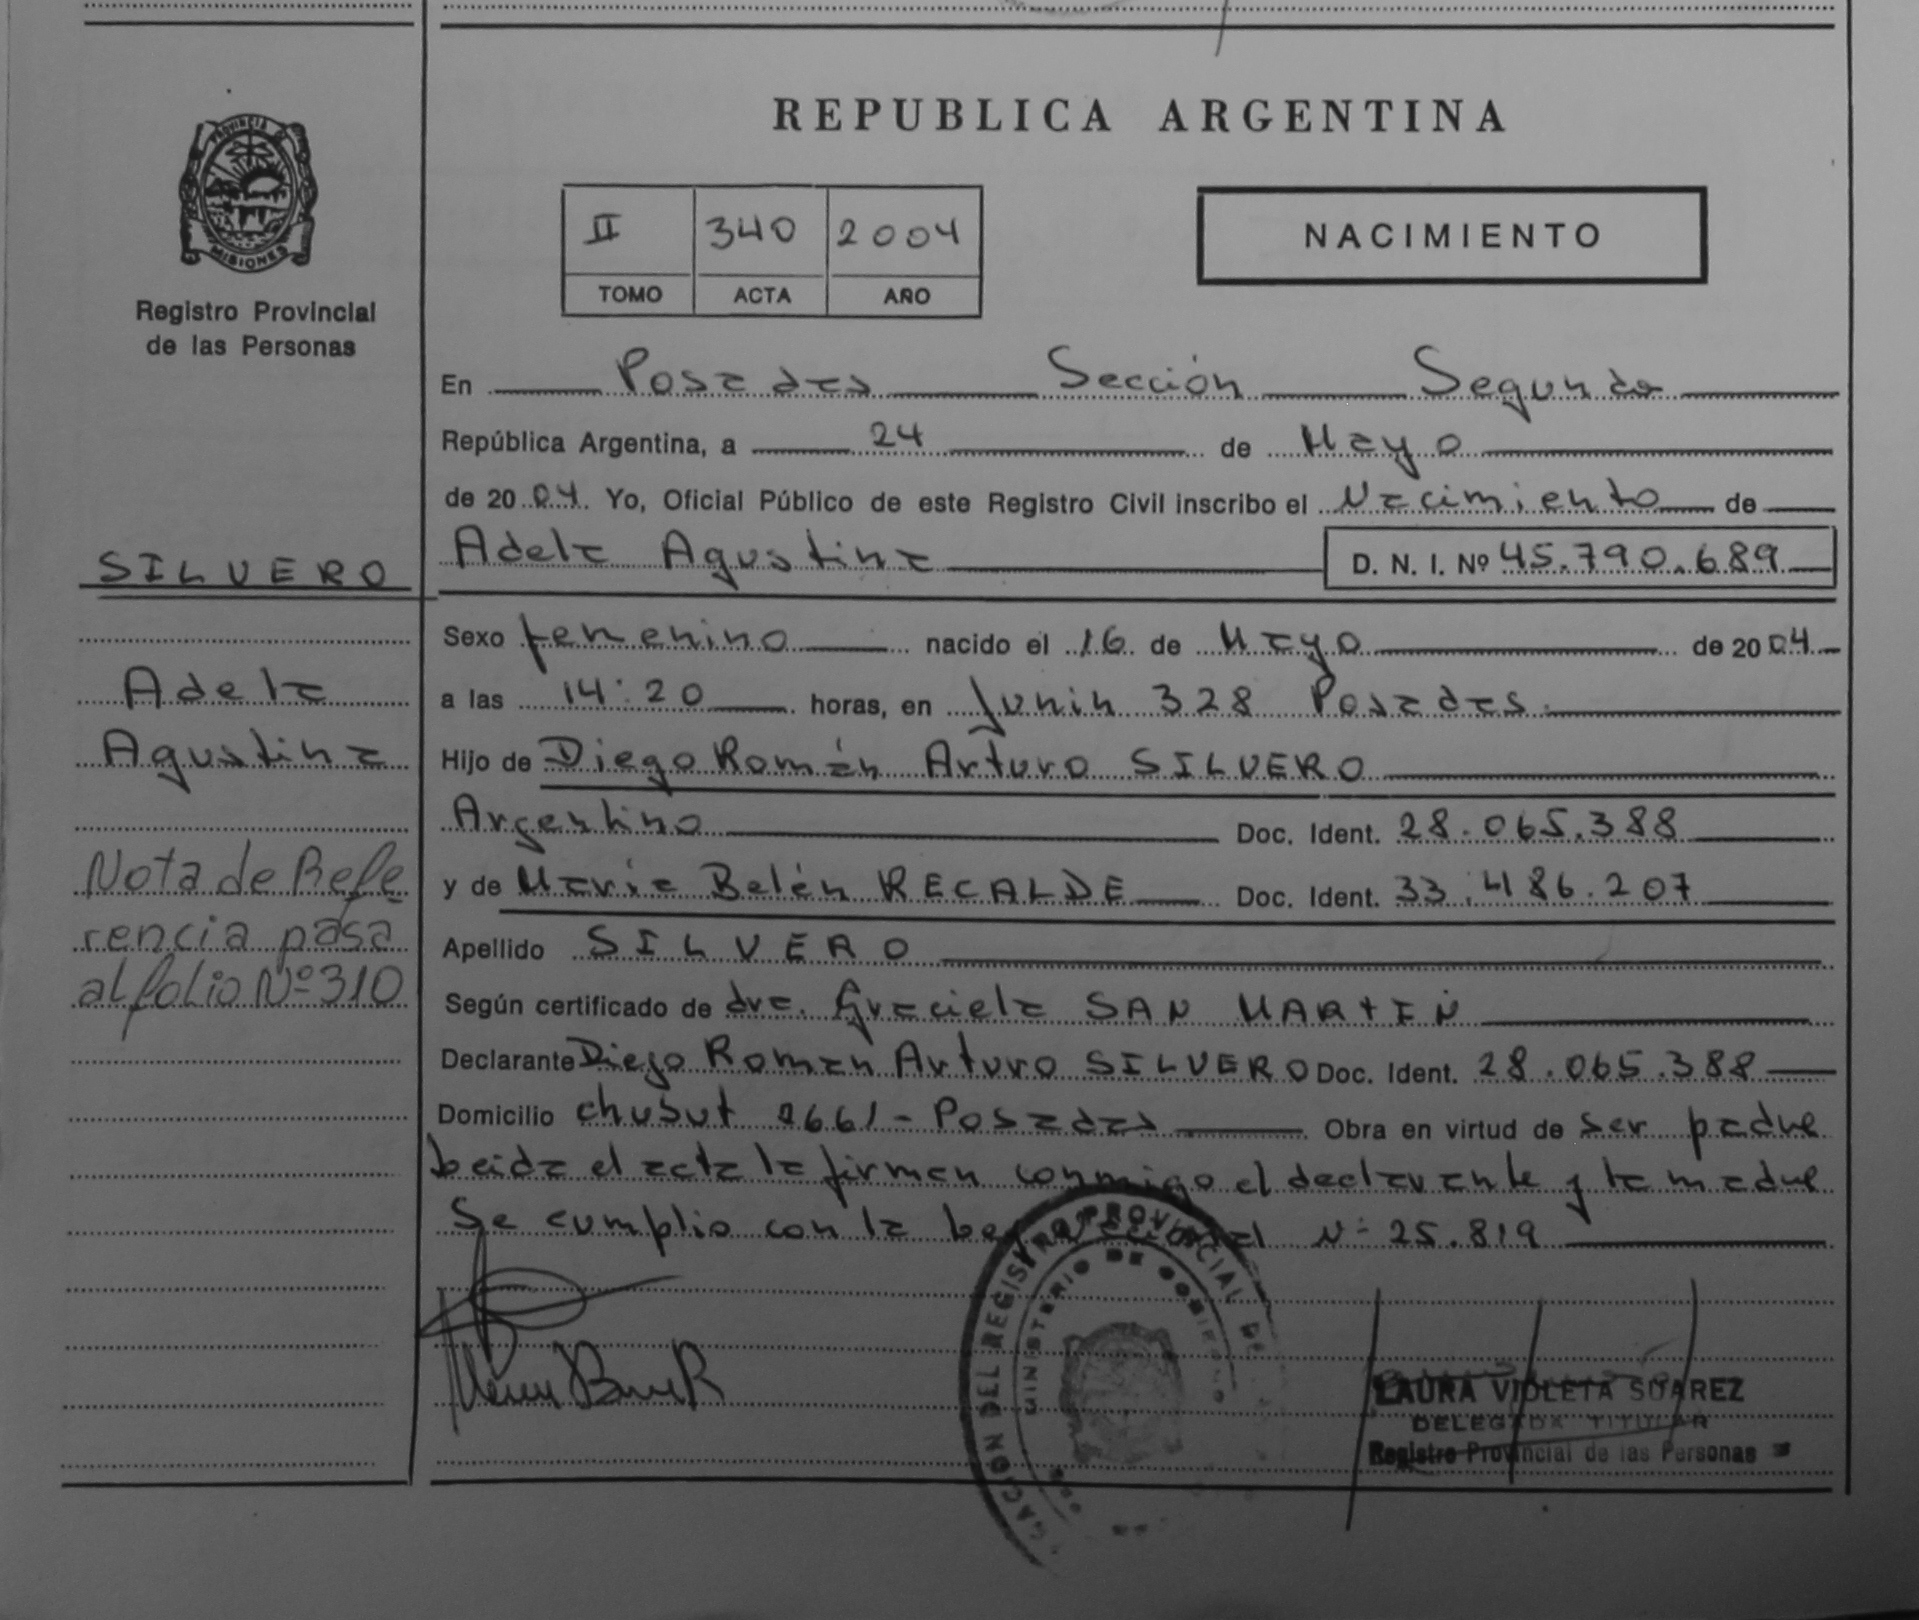 REPUBLICA ARGENTINA
PROVINCIA DE
MISIONES
Registro Provincial
de las Personas
II 340 2004
TOMO ACTA AÑO
NACIMIENTO
En Posadas Sección Segunda
República Argentina, a 24 de Mayo
de 2004. Yo, Oficial Público de este Registro Civil inscribo el Nacimiento de
SILVERO
Adela Agustina
D. N. I. Nº 45.790.689
Sexo femenino nacido el 16 de Mayo de 2004
Adela
a las 14:20 horas, en Junin 328 Posadas.
Agustina
Hijo de Diego Román Arturo SILVERO
Argentino Doc. Ident. 28.065.388
Nota de Refe
y de María Belén RECALDE Doc. Ident. 33.486.207
rencia pasa
Apellido SILVERO
al folio Nº 310
Según certificado de dra. Graciela SAN MARTIN
Declarante Diego Roman Arturo SILVERO Doc. Ident. 28.065.388
Domicilio chubut Posadas Obra en virtud de ser padre
Leida el acta la firman conmigo el declarante y la madre
Se cumplio con la Ley Nº 25.819
REGISTRO PROVINCIAL DE
MINISTERIO DE GOBIERNO
LAURA VIOLETA SUAREZ
DELEGADA TITULAR
Registro Provincial de las Personas